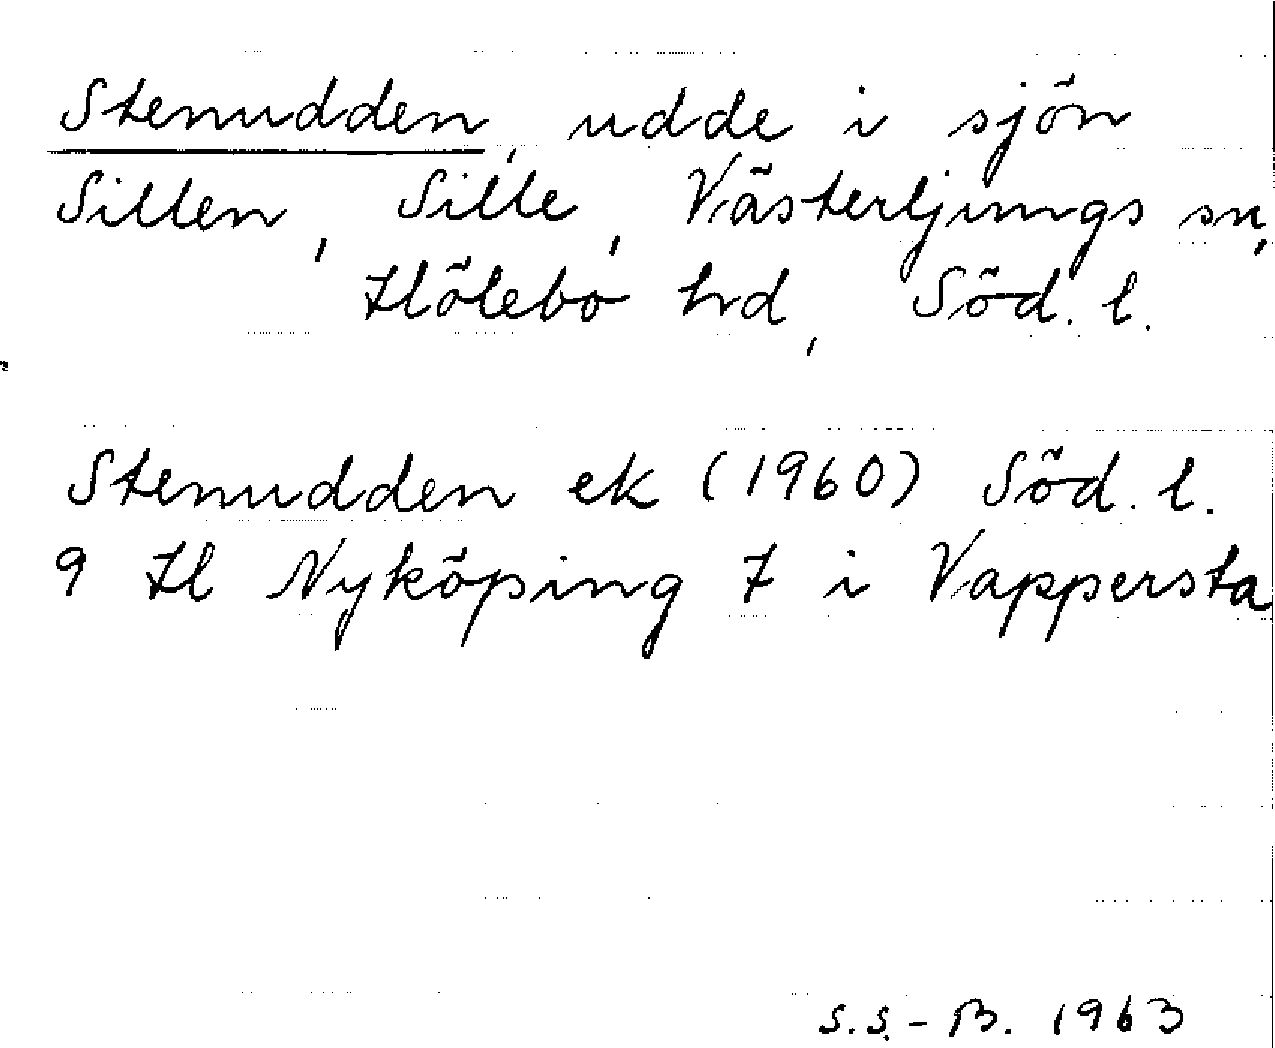 Stenudden, udde i sjön
Sillen, Sille, Västerljungs sn,
Hölebo hrd, Söd. l.
Stenudden ek (1960) Söd. l.
9 H Nyköping 7 i Vappersta
S.S.-B. 1963